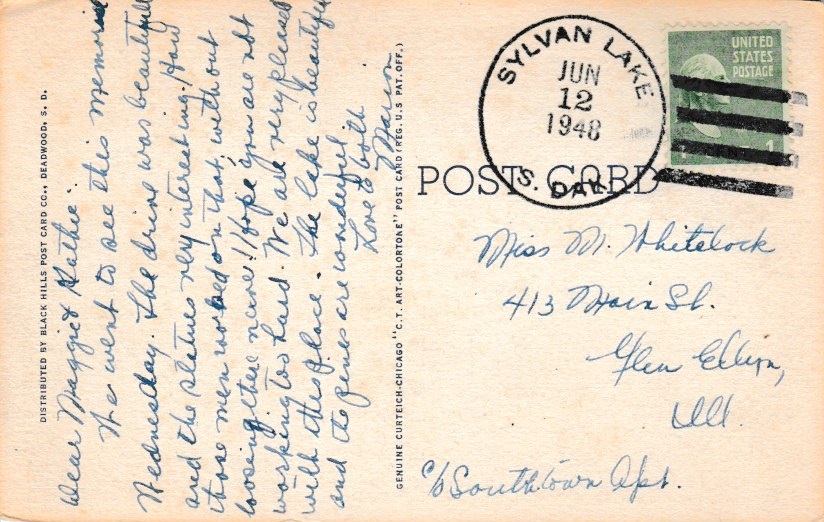 DISTRIBUTED BY BLACK HILLS POST CARD CO., DEADWOOD, S. D.
Dear Maggie & Kathie:
We went to see this memorial
Wednesday. The drive was beautiful
and the statues very interesting. How
those men worked on that, without
loosing there nerve! Hope you are not
working too hard. We are very pleased
with this place. The lake is beautiful
and the pines are wonderful
Love to both
Marion
GENUINE CURTEICH-CHICAGO "C.T. ART-COLORTONE" POST CARD (REG. U.S. PAT. OFF.)
SYLVAN LAKE
JUN
12
1948
S. DAK.
UNITED
STATES
POSTAGE
1 1
POST CARD
Miss M. Whitelock
413 Main St.
Glen Ellyn,
Ill.
c/o Southtown Apt.